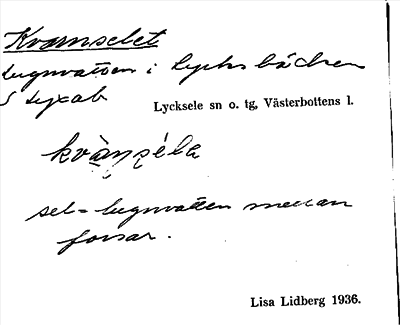 Kvarnselet
lugnvatten i Lycksbäcken
Lycksele sn o. tg, Västerbottens l.
sel = lugnvatten mellan
forsar.
Lisa Lidberg 1936.